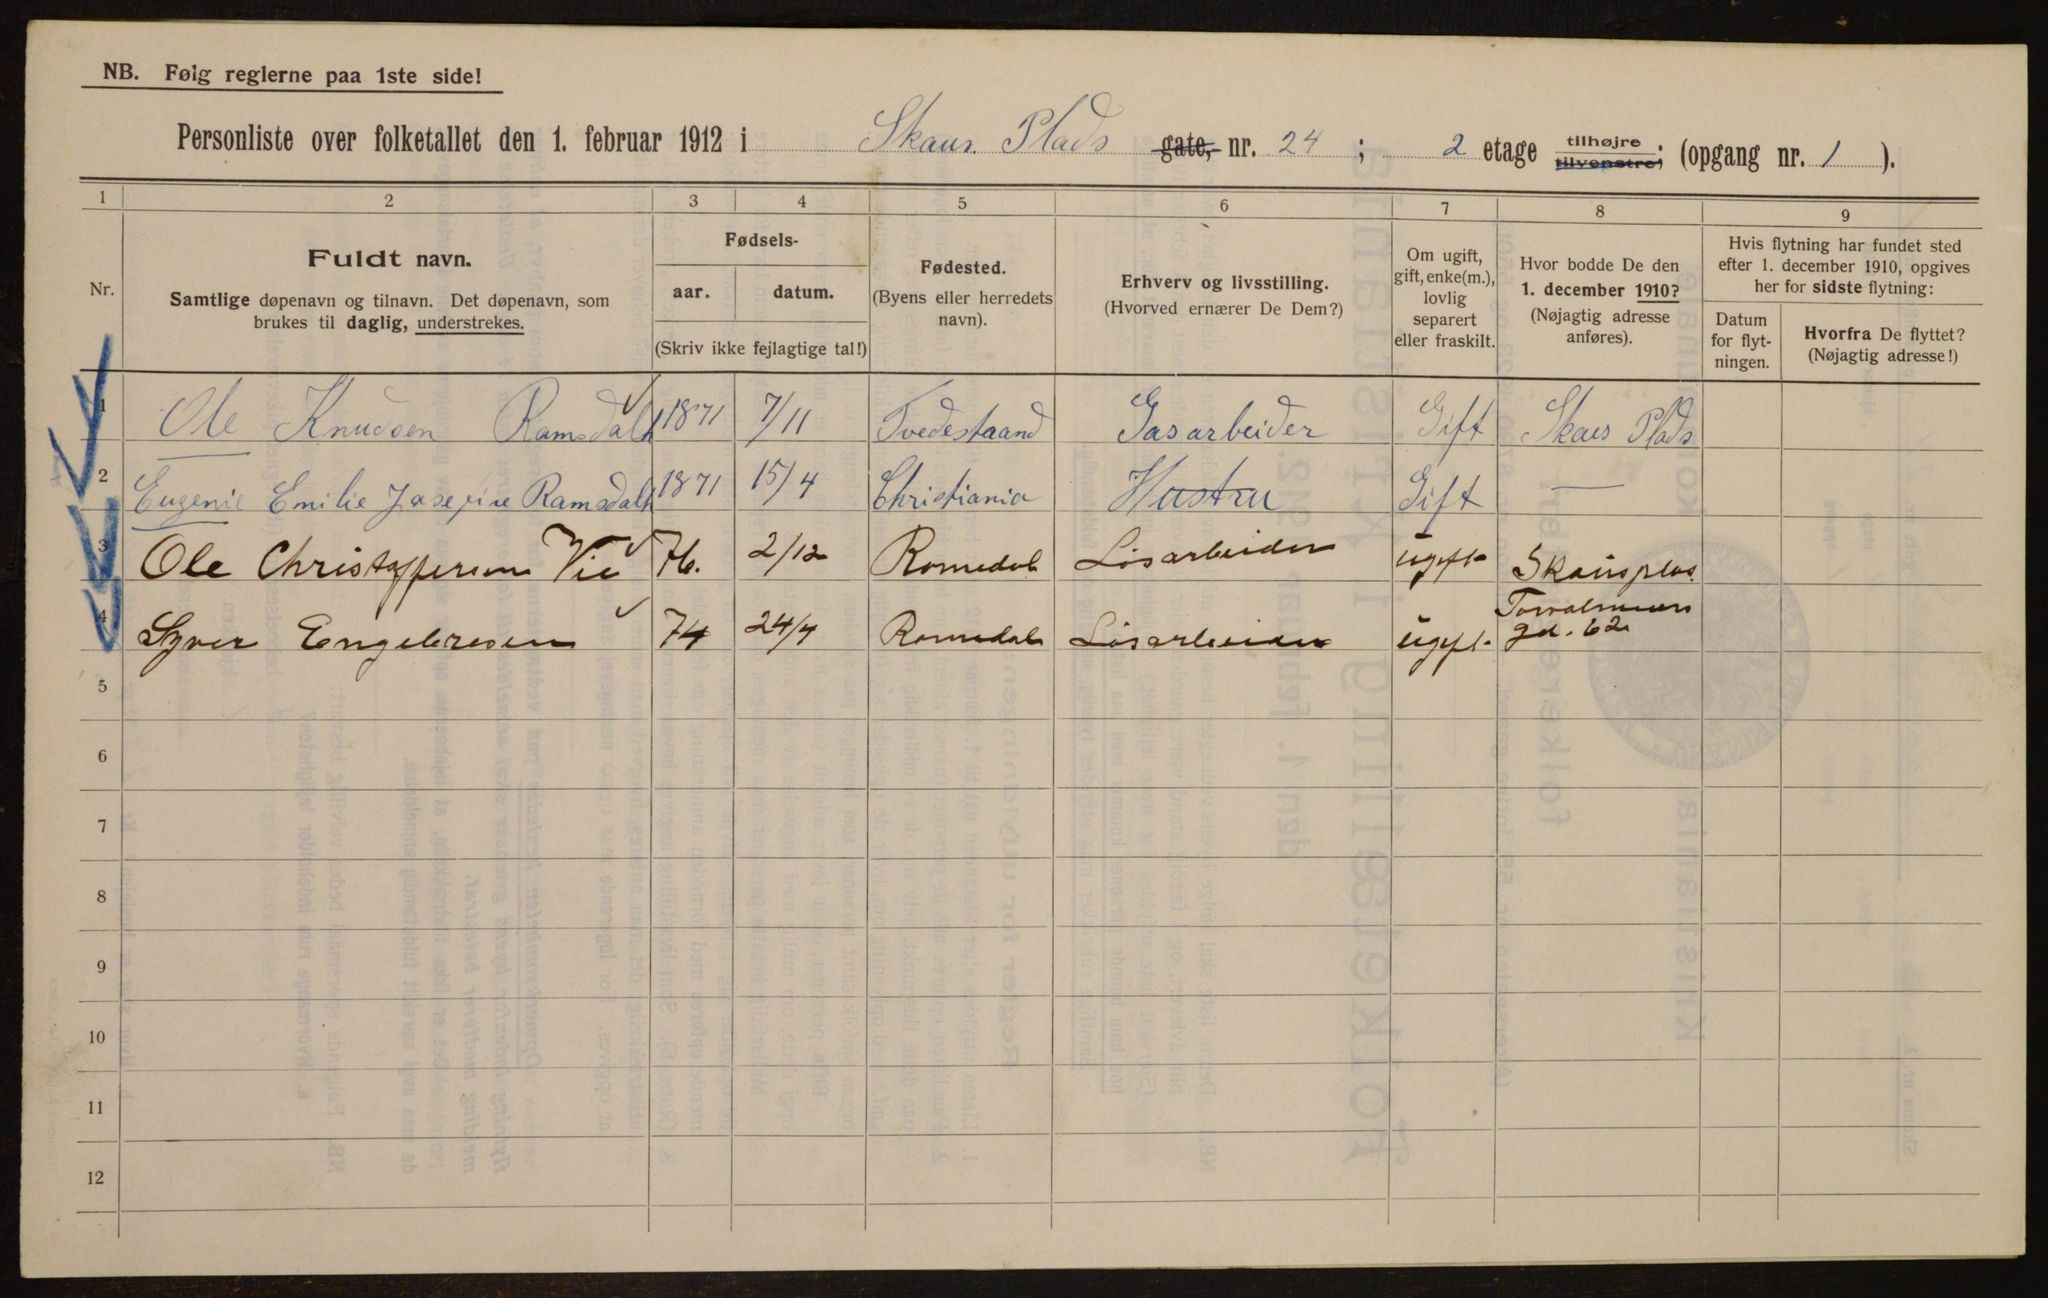 NB. Følg reglerne paa 1ste side!
Personliste over folketallet den 1. februar 1912 i Skaus. Plads gate, nr. 24 ; 2 etage tilhøjre tilvenstre; (opgang nr. 1 ).
1 2 3 4 5 6 7 8 9
Nr.
Fuldt navn.
Samtlige døpenavn og tilnavn. Det døpenavn, som
brukes til daglig, understrekes.
Fødsels-
aar. datum.
(Skriv ikke fejlagtige tal!)
Fødested.
(Byens eller herredets
navn).
Erhverv og livsstilling.
(Hvorved ernærer De Dem?)
Om ugift,
gift, enke(m.),
lovlig
separert
eller fraskilt.
Hvor bodde De den
1. december 1910?
(Nøjagtig adresse
anføres).
Hvis flytning har fundet sted
efter 1. december 1910, opgives
her for sidste flytning:
Datum
for flyt-
ningen.
Hvorfra De flyttet?
(Nøjagtig adresse!)
1 Ole Knudsen Ramsdalh 1871 7/11 Tvedestrand Gasarbeider Gift Skaus Plads
2 Eugenie Emilie Josefine Ramsdalh 1871 15/4 Christiania Hustru Gift —
3 Ole Christoffersen Vie 76. 2/12 Romedal Løsarbeider ugift Skausplas
4 Syver Engebresen 74 24/7 Romedal Løsarbeider ugift
gd. 62
5
6
7
8
9
10
11
12